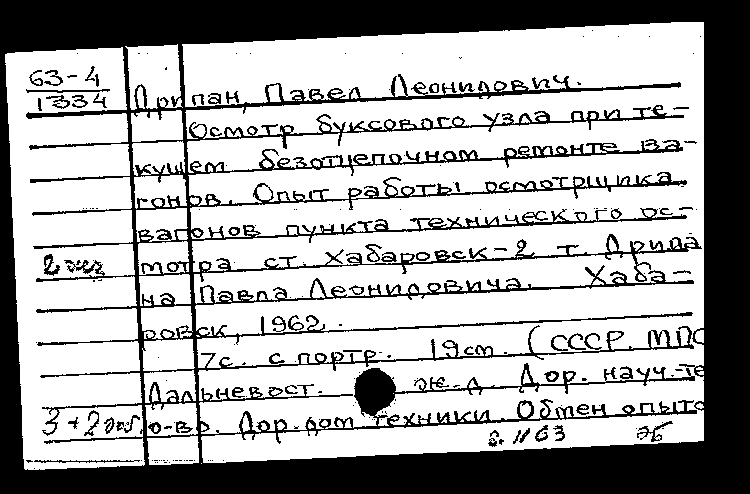 63-4
1334
Дрипан, Павел Леонидович.
Осмотр буксового узла при те-
кущем безотцепочном ремонте ва-
гонов. Опыт работы осмотрщика
вагонов пункта технического ос-
2 экз мотра ст. Хабаровск-2 т. Дрипа
на Павла Леонидовича. Хаба-
ровск, 1962.
7с. с портр. 19см. (СССР. МПС
Дальневост. ж.д. Дор. науч.-те
3+2 о-во. Дор. дом техники. Обмен опыто
63